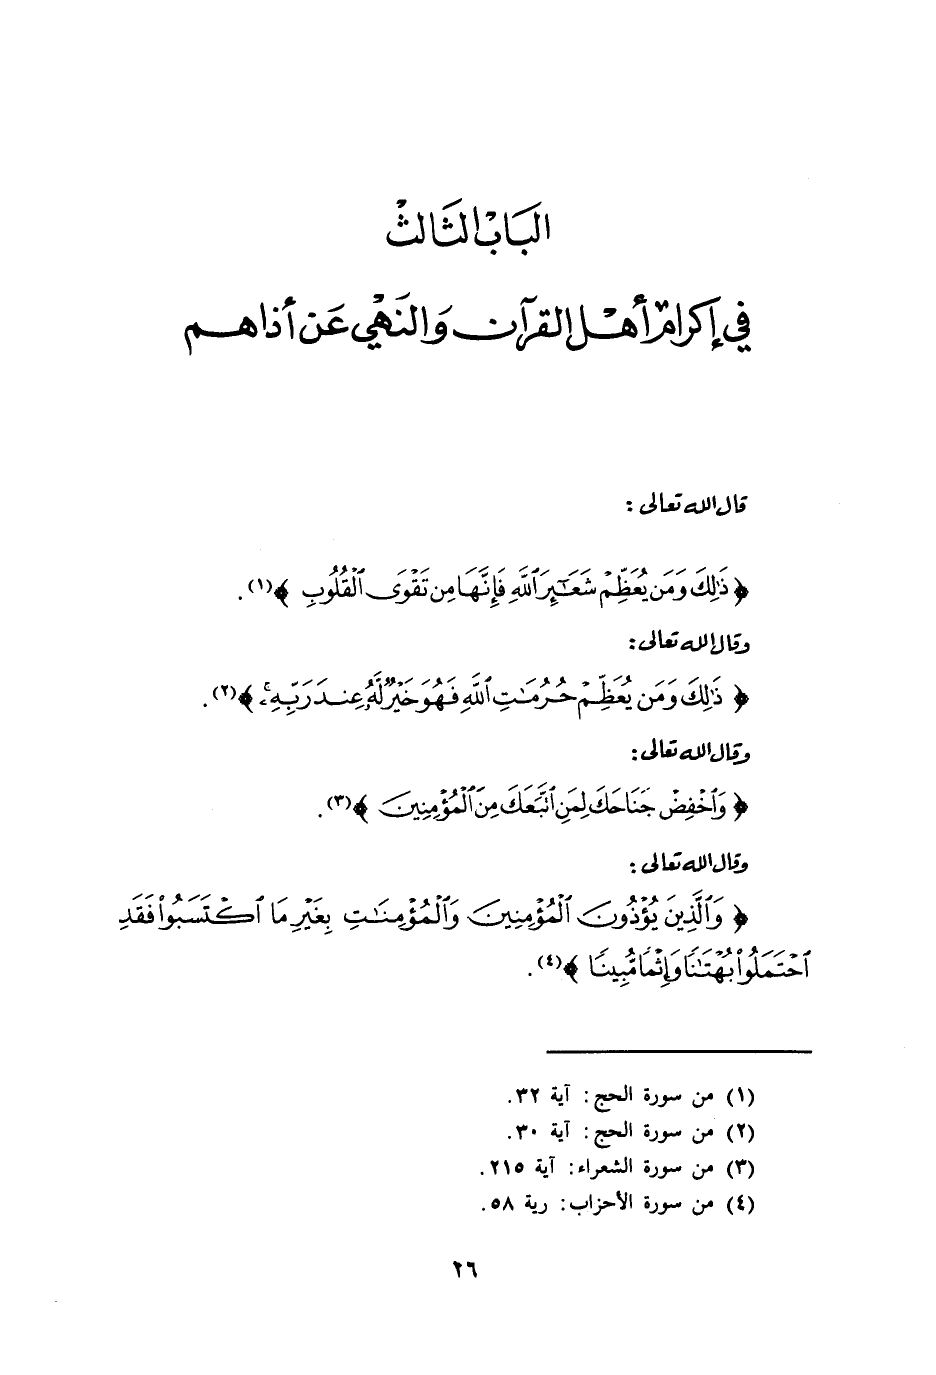 البَابُ الثَّالثُ
في إكرام أهل القرآن والنَهْي عَن أذاهم
قال الله تعالى :
﴿ ذَٰلِكَ وَمَن يُعَظِّمْ شَعَـٰٓئِرَ ٱللَّهِ فَإِنَّهَا مِن تَقْوَى ٱلْقُلُوبِ ﴾(١).
وقال الله تعالى:
﴿ ذَٰلِكَ وَمَن يُعَظِّمْ حُرُمَـٰتِ ٱللَّهِ فَهُوَ خَيْرٌ لَّهُۥ عِندَ رَبِّهِۦ ﴾(٢).
وقال الله تعالى:
﴿ وَٱخْفِضْ جَنَاحَكَ لِمَنِ ٱتَّبَعَكَ مِنَ ٱلْمُؤْمِنِينَ ﴾(٣).
وقال الله تعالى :
﴿ وَٱلَّذِينَ يُؤْذُونَ ٱلْمُؤْمِنِينَ وَٱلْمُؤْمِنَـٰتِ بِغَيْرِ مَا ٱكْتَسَبُوا۟ فَقَدِ
ٱحْتَمَلُوا۟ بُهْتَـٰنًا وَإِثْمًا مُّبِينًا ﴾(٤).
(١) من سورة الحج : آية ٣٢.
(٢) من سورة الحج : آية ٣٠.
(٣) من سورة الشعراء: آية ٢١٥.
(٤) من سورة الأحزاب: رية ٥٨.
٢٦